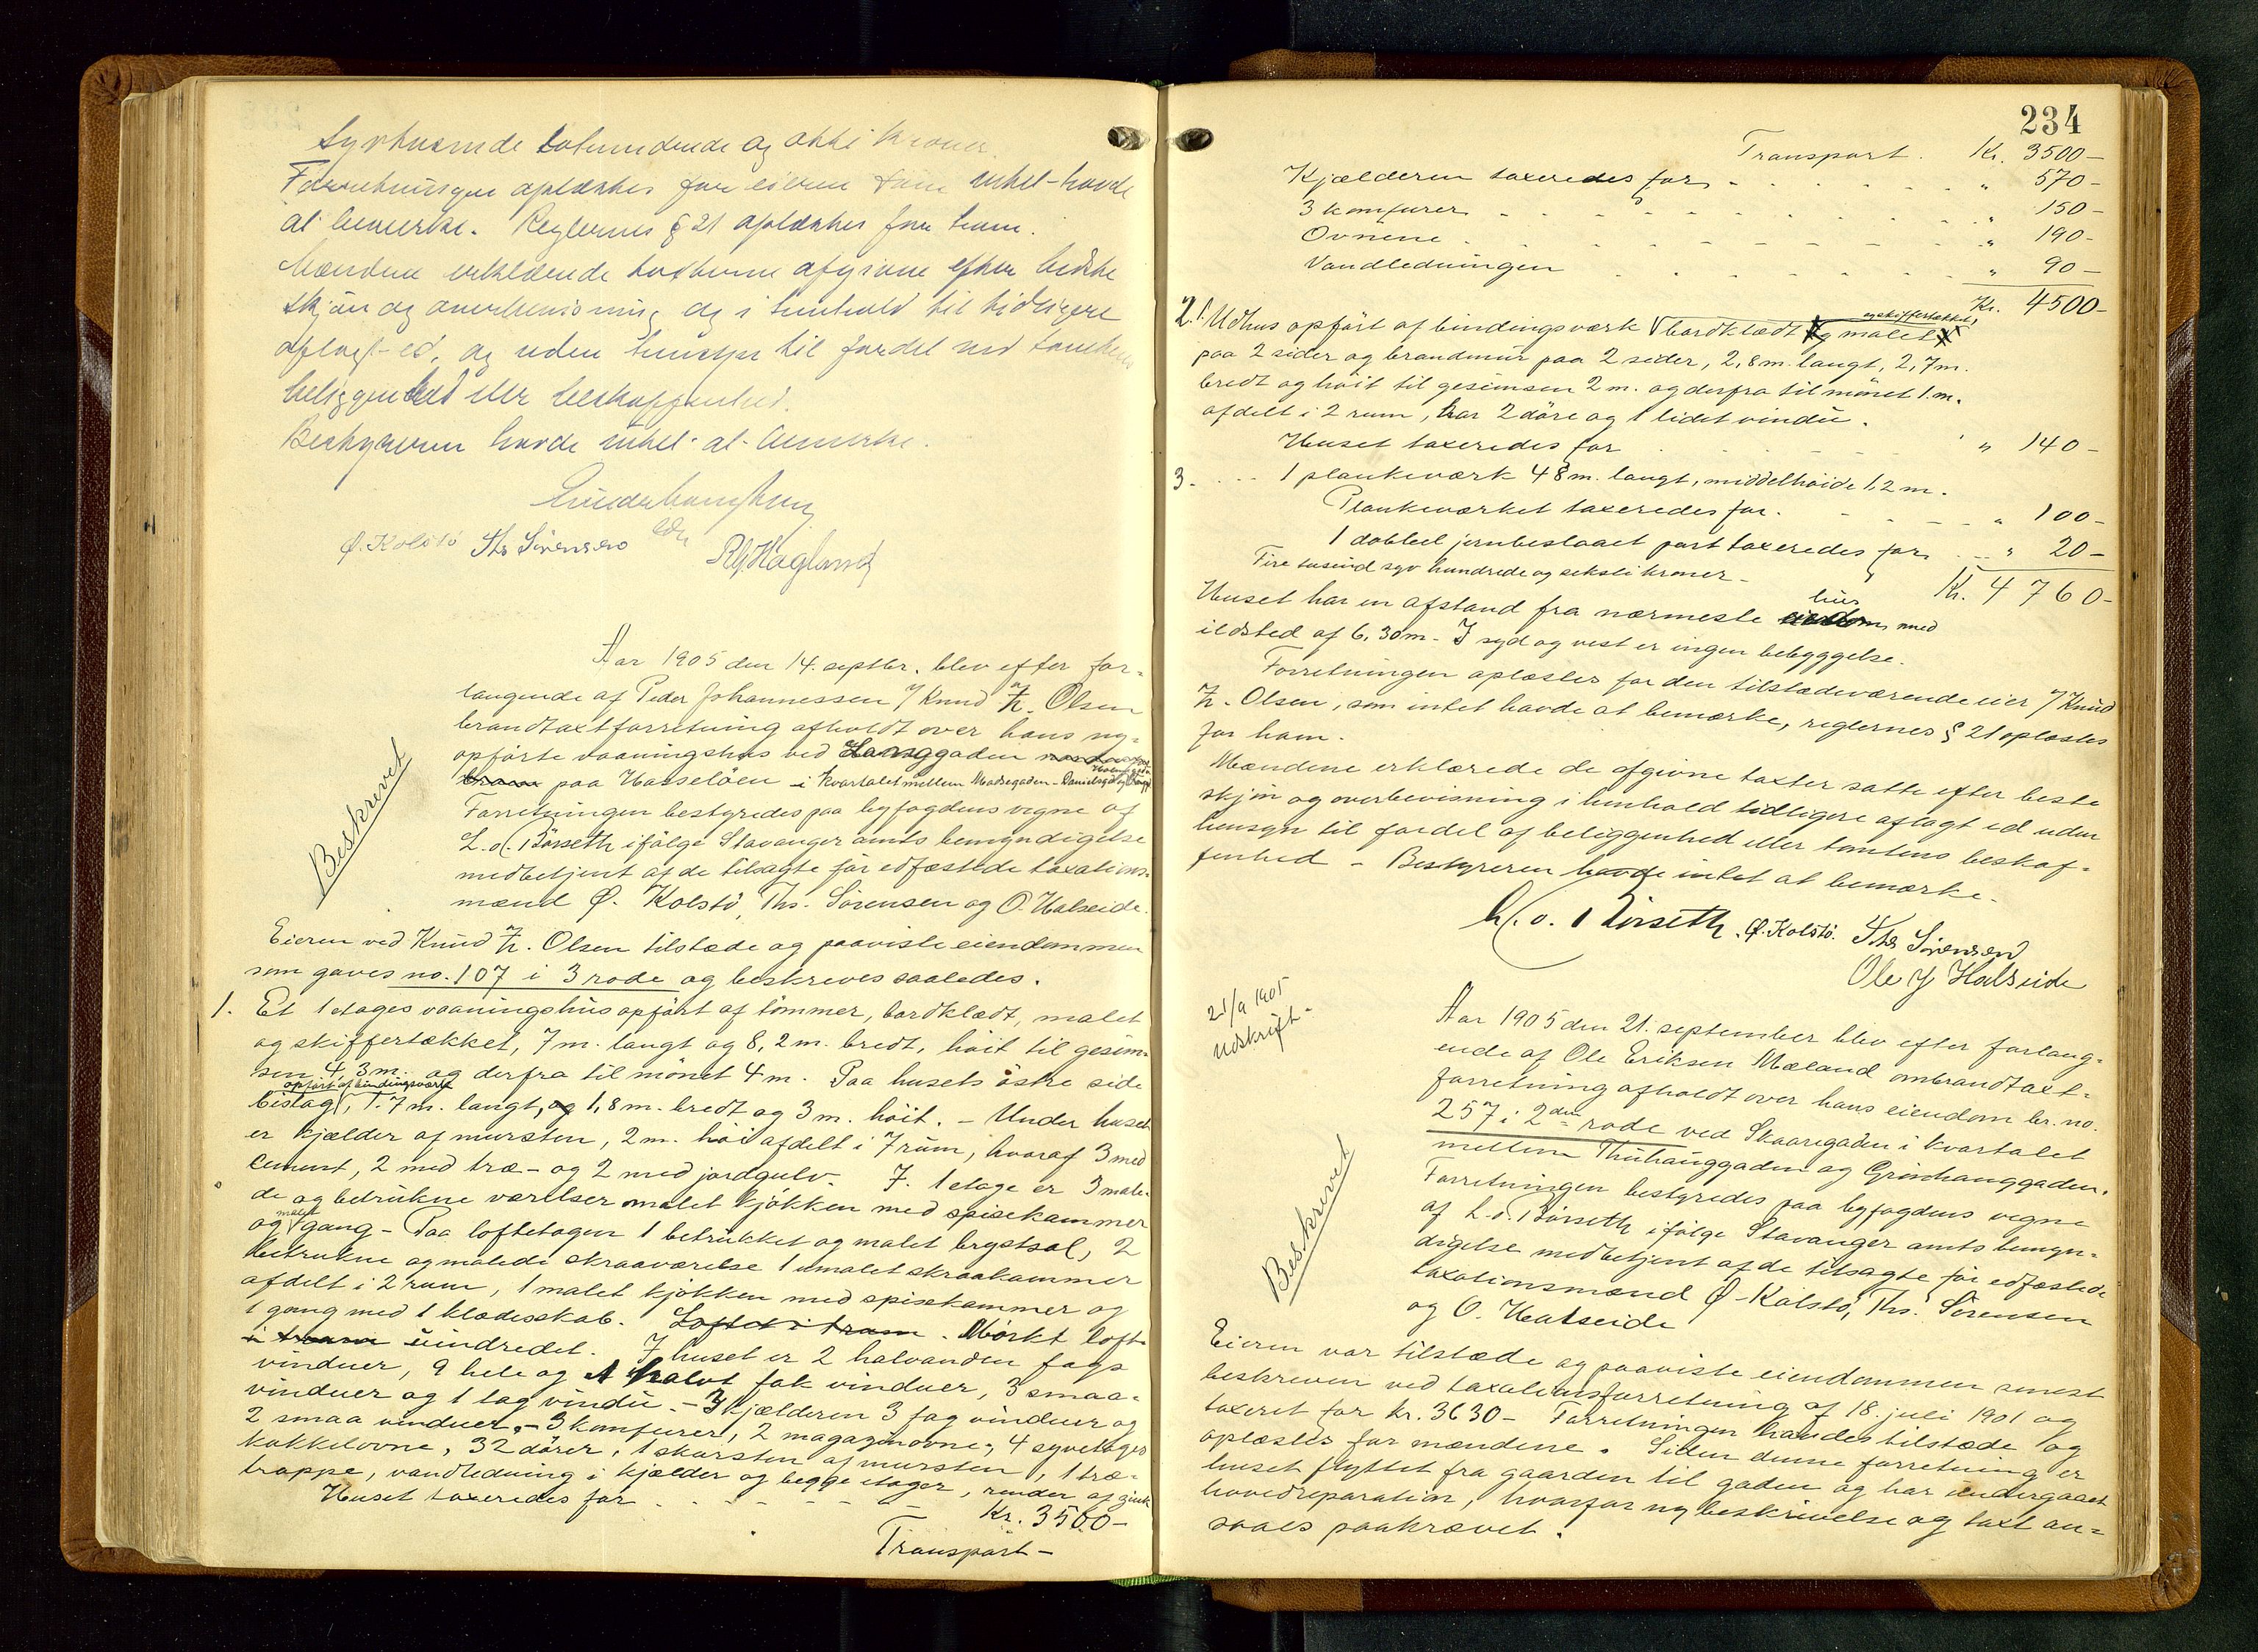 Syvtusinde tohundrede og otti kroner.
Forretningen oplæstes for eieren som intet havde
at bemerke. Reglernes § 21 oplæstes for ham.
Mændene erklærede taxterne afgivne efter bedste
skjøn og overbevisning og i henhold til tidligere
aflagt ed, og uden hensyn til fordel ved tomtens
beliggenhed eller beskaffenhed.
Bestyreren havde intet at bemerke.
Ø. Kolstö Ths Sörensen
Aar 1905 den 14. septbr. blev efter for-
langende af Peder Johannessen v/ Knud Z. Olsen
brandtaxtforretning afholdt over hans ny-
opførte vaaningshus ved Langgaden
paa Hasselöen i kvartalet mellem Madsegaden - Danielsgd.
Beskrevet
Forretningen bestyredes paa byfogdens vegne af
L. o. Börseth ifölge Stavanger amts bemyndigelse
medbetjent af de tilsagte för edfæstede taxations-
mænd Ø. Kolstö, Ths. Sörensen og O. Halseide.
Eieren ved Knud Z. Olsen tilstede og paaviste eiendommen
som gaves no. 107 i 3 rode og beskreves saaledes.
1. Et 1 etages vaaningshus opfört af tömmer, bordklædt, malet
og skiffertækket, 7 m. langt og 8,2 m. bredt, höit til gesim-
sen 4,3 m. og derfra til mönet 4 m. Paa husets östre side
opfört af bindingsværk
bislag, 1.7 m. langt, og 1,8 m. bredt og 3 m. höit. - Under huset
er kjælder af mursten, 2 m. höi afdelt i 7 rum, hvoraf 3 med
cement, 2 med træ- og 2 med jordgulv. I. 1 etage er 3 male-
de og betrukne værelser malet kjökken med spisekammer
malet
og gang - Paa loftetagen 1 betrukket og malet brystsal, 2
betrukne og malede skraaværelse 1 umalet skraakammer
afdelt i 2 rum, 1 malet kjökken med spisekammer og
1 gang med 1 klædesskab. Loftet i tram. Mörkt loft
i uindredet. I huset er 2 halvanden fags
vinduer, 9 hele og 1 halvt fak vinduer, 3 smaa-
vinduer og 1 tag vindu. - I kjælderen 3 fag vinduer og
2 smaa vinduer. - 3 komfurer, 2 magazinovne, 4 syvetages
kakkelovne, 32 dörer, 1 skorsten af mursten, 1 træ-
trappe, vandledning i kjælder og begge etager, render af zink
Huset taxeredes for Kr. 3500 -
Transport -
234
Transport. Kr. 3500 -
Kjælderen taxeredes for " 570 -
3 komfurer " 150 -
Ovnene " 190 -
Vandledningen " 90 -
Kr. 4500 -
og skiffertækket,
2. Udhus opfört af bindingsværk bordklædt og malet
paa 2 sider og brandmur paa 2 sider, 2,8 m. langt, 2,7 m.
bredt og höit til gesimsen 2 m. og derfra til mönet 1 m.
afdelt i 2 rum, har 2 döre og 1 lidet vindu.
Huset taxeredes for " 140 -
3. 1 plankeværk 48 m. langt, middelhöide 1,2 m.
Plankeværket taxeredes for. " 100 -
1 dobbel jernbeslaaet port taxeredes for " 20 -
Fire tusind syv hundrede og seksti kroner - Kr. 4760 -
hus
Huset har en afstand fra nærmeste eiendom med
ildsted af 6,30 m - I syd og vest er ingen bebyggelse.
Forretningen oplæstes for den tilstedeværende eier v/ Knud
Z. Olsen, som intet havde at bemærke, reglernes § 21 oplæstes
for ham.
Mændene erklærede de afgivne taxter satte efter beste
skjön og overbevisning i henhold tidligere aflagt ed uden
hensyn til fordel af beliggenhed eller tomtens beskaf-
fenhed - Bestyreren havde intet at bemærke.
L. o. Börseth. Ø. Kolstö. Ths Sörensen
Ole J Halseide
21/9 1905
udskrift.
Aar 1905 den 21. september blev efter forlang-
ende af Ole Eriksen Mæland ombrandtaxt-
forretning afholdt over hans eiendom br. no.
257 i 2den rode ved Skaaregaden i kvartalet
mellem Thuhauggaden og Grönhauggaden.
Beskrevet
Forretningen bestyredes paa byfogdens vegne
af L. o. Börseth ifölge Stavanger amts bemyn-
digelse medbetjent af de tilsagte för edfæstede
taxationsmænd Ø. Kolstö, Ths. Sörensen
og O. Halseide
Eieren var tilstæde og paaviste eiendommen senest
beskreven ved taxationsforretning af 18. juli 1901 og
taxeret for kr. 3630 - Forretningen havdes tilstæde og
oplæstes for mændene. Siden denne forretning er
huset flyttet fra gaarden til gaden og har undergaaet
hovedreparation, hvorfor ny beskrivelse og taxt an-
saaes paakrævet.